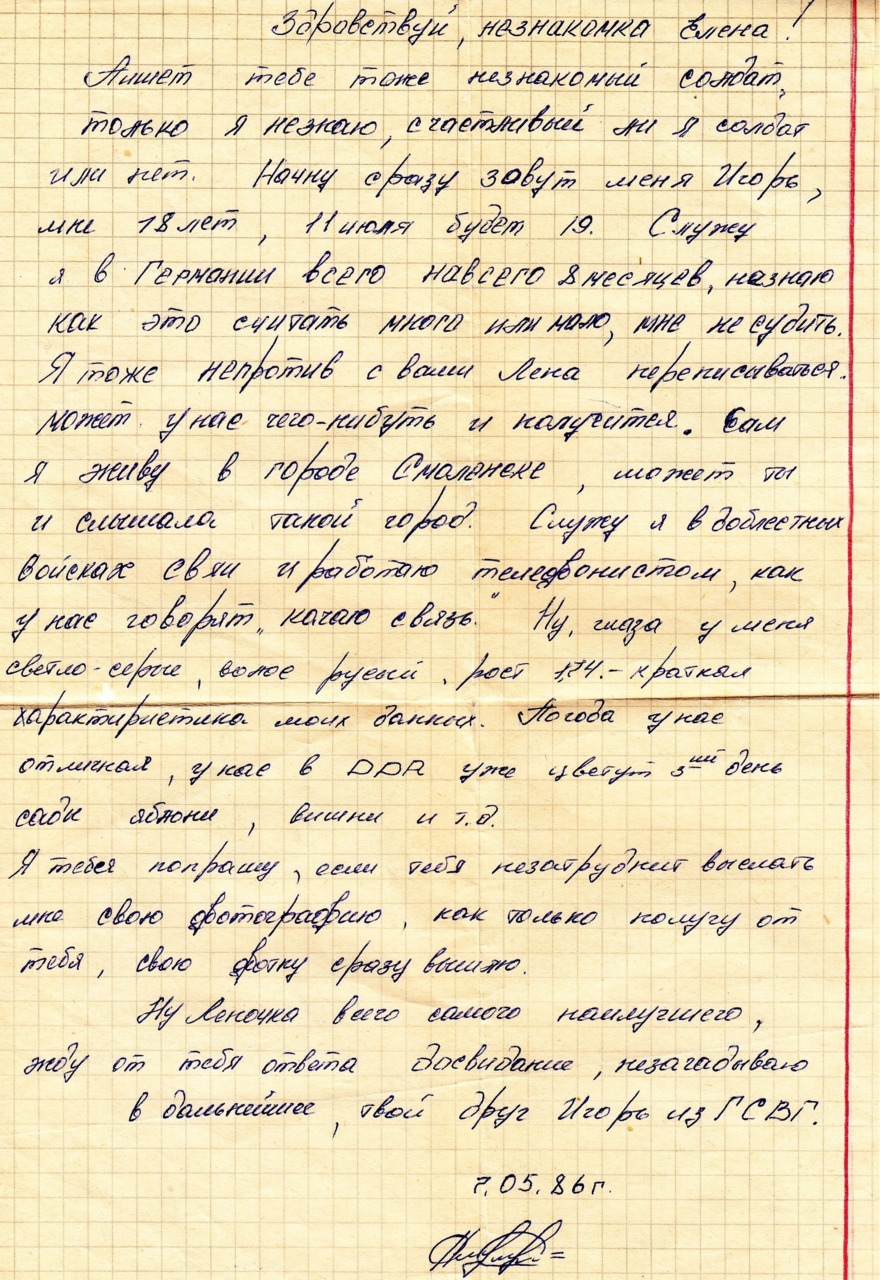 Здравствуй, незнакомка Елена!
Пишет тебе тоже незнакомый солдат,
только я незнаю, счастливый ли я солдат
или нет. Начну сразу завут меня Игорь,
мне 18 лет, 11 июля будет 19. Служу
я в Германии всего навсего 8 месяцев, назнаю
как это считать много или мало, мне не судить.
Я тоже непротив с вами Лена переписываться.
может у нас чего-нибуть и получится. Сам
я живу в городе Смоленске, может ты
и слышала такой город. Служу я в доблестных
войсках свяи и работаю теледвонистом, как
у нас говорят „качаю связь." Ну, глаза у меня
светло-серые, волос русый, рост 1,74.- краткая
характиристика моих данных. Погода у нас
отличная, у нас в DDR уже цветут 3ий день
сады яблони, вишни и т.д.
Я тебея попрашу, если тебя незатруднит выслать
мне свою фотографию, как только получу от
тебя, свою фотку сразу вышлю.
Ну Леночка всего самого наилучшего,
жду от тебя ответа досвидание, незагадываю
в дальнейшее, твой друг Игорь из ГСВГ.
7.05.86 г.